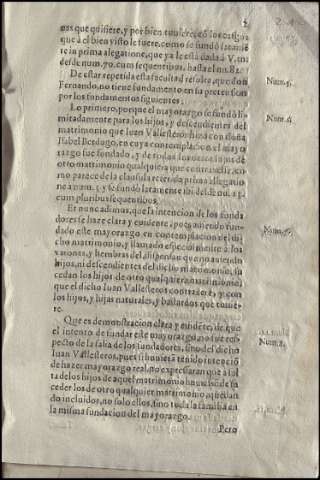 2
nas que quisiere, y por bien
que à el bien visto le fuere, como se fundò
te in prima alegatione, que ya le està dada à V. m.
desde num. 70. cum sequentibus, hasta el nu. 82.
De estar repetida esta facultad resulta, que don
Num. 5.
Fernando, no tiene fundamento en su pretension
por los fundamentos siguientes.
Lo primero, porque el mayorazgo se fundò li-
Num. 6.
mitadamente para los hijos, y descendientes del
matrimonio que Iuan Vallesteros hizo con doña
Isabel Berdugo, en cuya contemplacion el mayo
razgo fue fundado, y de todas los otros hijos de
otro matrimonio qualquiera que contraxesse, co-
mo parece de la clausula referida prima allegatio
ne à num. 1. y se fundò latamente ibi desde nu.
cum pluribus sequentibus.
Et nunc adimus, que la intencion de los funda
Num. 7.
dores se haze clara y evidente, pues aviendo fun-
dado este mayorazgo en contemplacion del di-
cho matrimonio, y llamado especialmente à los
varones, y hembras del disponen que no aviendo
hijos, ni descendientes del dicho matrimonio, su
cedan los hijos de otro qualquiera matrimonio,
que el dicho Iuan Vallesteros contraxere, y con
los hijos, y hijas naturales, y bastardos que tuvie-
re.
Que es demonstracion clara y evidente, de que
el intento de fundar este mayorazgo, no fue res-
Num. 8.
pecto de la falta de los fundadores, sino del dicho
Iuan Vallesteros, pues si huviera tenido intenciō
de hazer mayorazgo real, no expressaran que à fal
ta de los hijos de aquel matrimonio huviessen de su
ceder los de otro qualquier matrimonio,
do incluidos, no solo ellos, sino toda la familia en
la misma fundacion del mayorazgo.
Pero